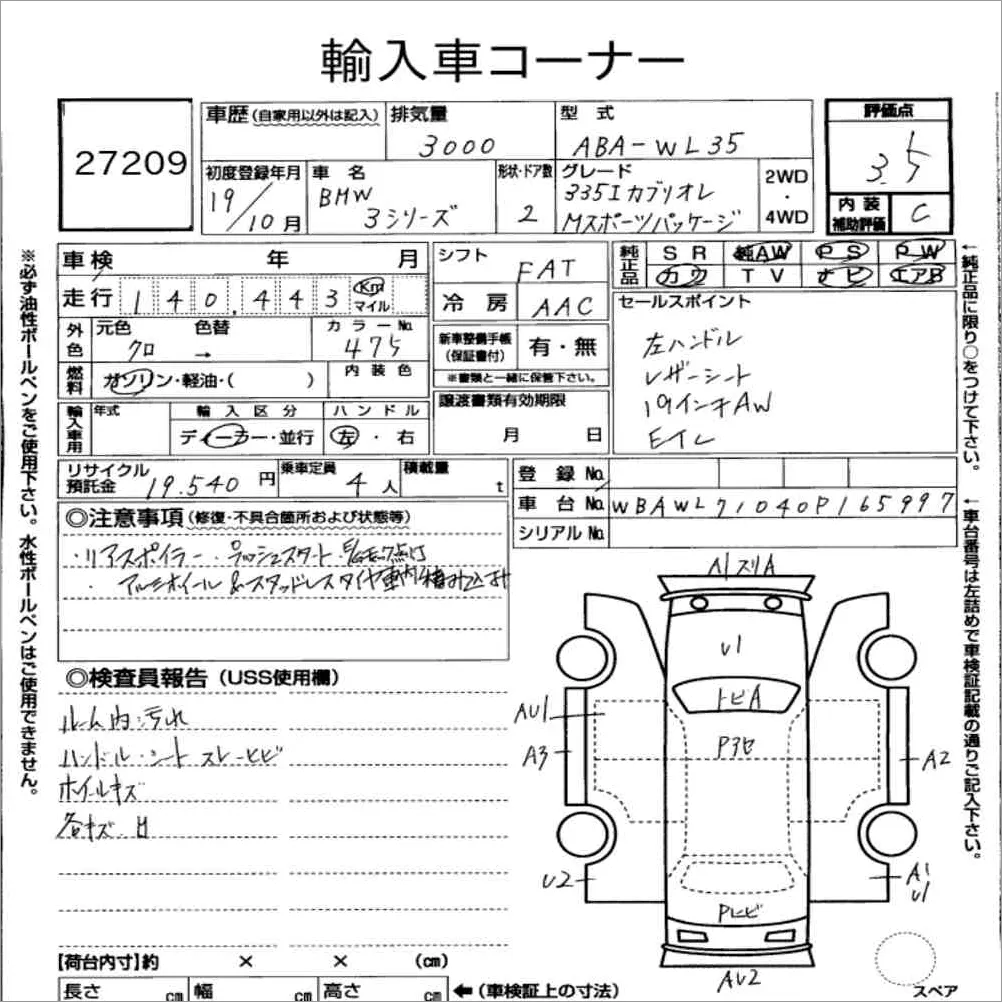 輸入車コーナー
27209
車歴 (自家用以外は記入) 排気量 3000 型式 ABA-WL35 評価点 3.5
初度登録年月 19/10月 車名 BMW 3シリーズ 形状・ドア数 2 グレード 335I カブリオレ Mスポーツパッケージ 2WD・4WD
内装補助評価 C
車検 年 月 シフト FAT
純正品 SR 純AW PS PW
カワ TV ナビ エアB
走行 140,443 Km マイル 冷房 AAC
外色 元色 クロ 色替 → カラーNo. 475
新車整備手帳 (保証書付) 有・無
※書類と一緒に保管下さい。
燃料 ガソリン・軽油・( ) 内装色
譲渡書類有効期限 月 日
輸入車用 年式 輸入区分 ディーラー・並行 ハンドル 左・右
セールスポイント
左ハンドル
レザーシート
19インチAW
Eイレ
リサイクル預託金 19.540円 乗車定員 4人 積載量 t
登録No.
車台No. WBAWL71040P165997
シリアルNo.
◎注意事項 (修復・不具合箇所および状態等)
・リアスポイラー・プッシュスタート
・アルミホイール&スタッドレスタイヤ車内積み込み
◎検査員報告 (USS使用欄)
ルーム内汚れ
ハンドル・シート スレ・ヒビ
ホイールキズ
各キズ H
U1
トビA
Pアセ
AU1
A3
A2
U2
A1
U1
Pヒビ
AU2
スペア
【荷台内寸】約 × × (cm)
長さ cm 幅 cm 高さ cm ←(車検証上の寸法)
※必ず油性ボールペンをご使用下さい。水性ボールペンはご使用できません。
←純正品に限り○をつけて下さい。
←車台番号は左詰めで車検証記載の通りご記入下さい。